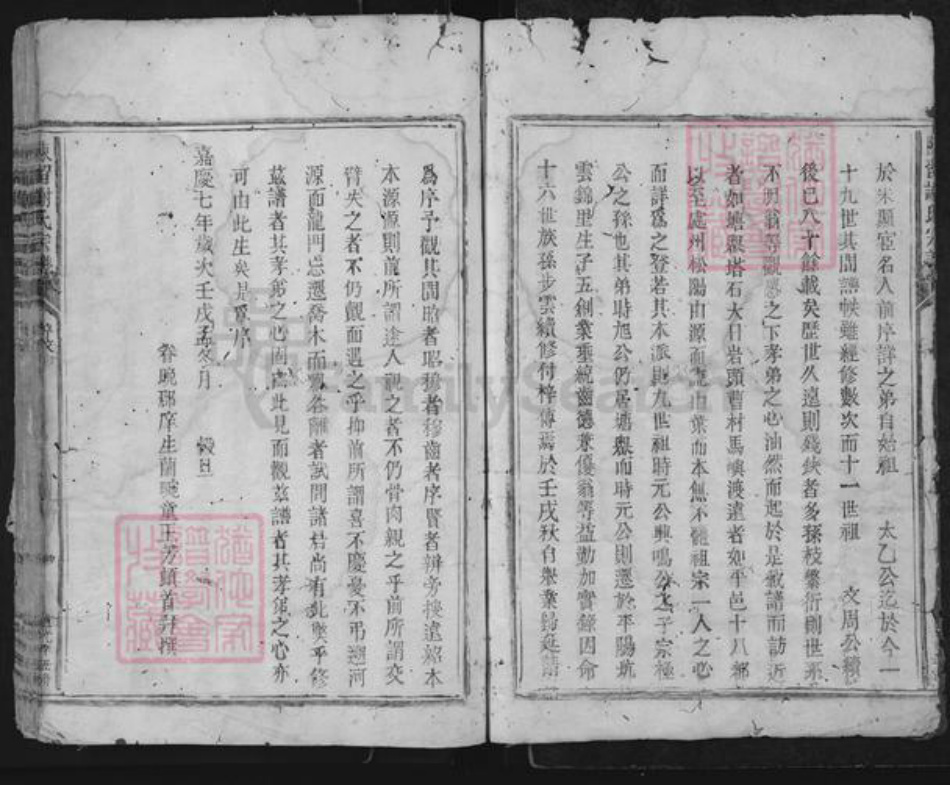 於宋顯宦名人前序詳之弟自始祖 太乙公迄於今一
十九世其間譜帙雖經修數次而十一世祖 文周公續
後已八十餘載矣歷世久遠則殘缺者多孫枝繁衍則世系
不明翁等觀感之下孝弟之心油然而起於是敘譜而訪近
者如塘嶴塔石大日岩頭曹村馬嶼渡遠者如平邑十八都
以至處州松陽由源而流由葉而本無不體祖宗一人之心
而詳爲之登若其本派則九世祖時元公興鳴公之子宗極
公之孫也其弟時旭公仍居塘嶴而時元公則遷於平陽坑
雲錦里生子五創業垂統齒德兼優翁等益勤加實錄因命
十六世族孫步雲續修付梓傳焉於壬戌秋自舉業歸延請
爲序予觀其間昭者昭穆者穆齒者序賢者辨旁搜遠紹本
本源源則前所謂途人視之者不仍骨肉親之乎前所謂交
臂失之者不仍覿面遇之乎抑前所謂喜不慶憂不弔遡河
源而龍門忘遷喬木而 各離者試問諸君尚有此墜乎修
茲譜者其孝弟之心固由此見而觀茲譜者其孝弟之心亦
可由此生矣是爲序
嘉慶七年歲次壬戌孟冬月 穀旦
眷晚瑯庠生蘭畹童玉芳頓首拜撰
陳留謝氏宗譜
FamilySearch